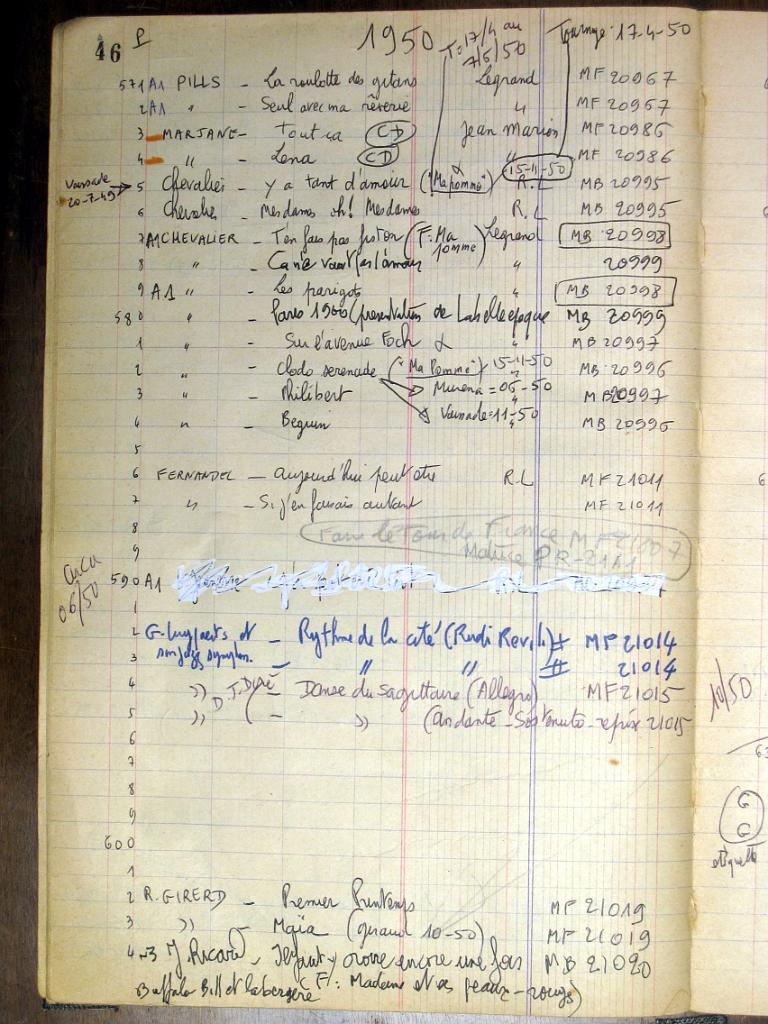 46 P 1950 T: 17/4 au 7/6/50 Tournage: 17-4-50
571 A1 PILLS - La roulotte des gitans Legrand MF 20967
2 A1 " - Seul avec ma rêverie " MF 20967
3 MARJANE - Tout ça (CD) Jean Marion MF 20986
4 " - Lena (CD) " MF 20986
Vaissade 20-7-49 → 5 Chevalier - y a tant d'amour ("Ma pomme") 15-11-50 R.L MB 20995
6 Chevalier - Mesdames oh! Mesdames R.L MB 20995
7 A1 CHEVALIER - T'en fais pas fiston (F: Ma pomme) Legrand MB 20998
8 " - Ca n'e vaut pas l'amour " 20999
9 A1 " - Les parigots " MB 20998
580 " - Paris 1900 (presentation de La belle epoque MB 20999
1 " - Sur l'avenue Foch " MB 20997
2 " - Clodo serenade ("Ma Pomme") 15-11-50 MB 20996
3 " - Philibert → Murena = 06-50 MB 20997
4 " - Beguin → Vaissade = 11-50 MB 20996
5
6 FERNANDEL - aujourd'hui peut etre R.L MF 21011
7 " - Si j'en faisais autant MF 21011
8 Faire le Tour de France MF 21007
9 Matrice PR-21A1
CuCu 06/50 590 A1
1
2 G. Luypaerts et - Rythme de la cité (Rudi Revil) # MF 21014
3 son jazz symphon. - " " # 21014
4 " D.T. Diré - Danse du sagittaire (Allegro) MF 21015
5 " - " (andante - Sostenuto - reprise 21015
10/50
6
7
8
9
G
G
etiquette
600
1
2 R. GIRERD - Premier Printemps MF 21019
3 " - Maïa (Giraud 10-50) MF 21019
4 J Ricard - y croire encore une fois MB 21020
Buffalo Bill et la bergère (F: Madame et ses peaux-rouges)